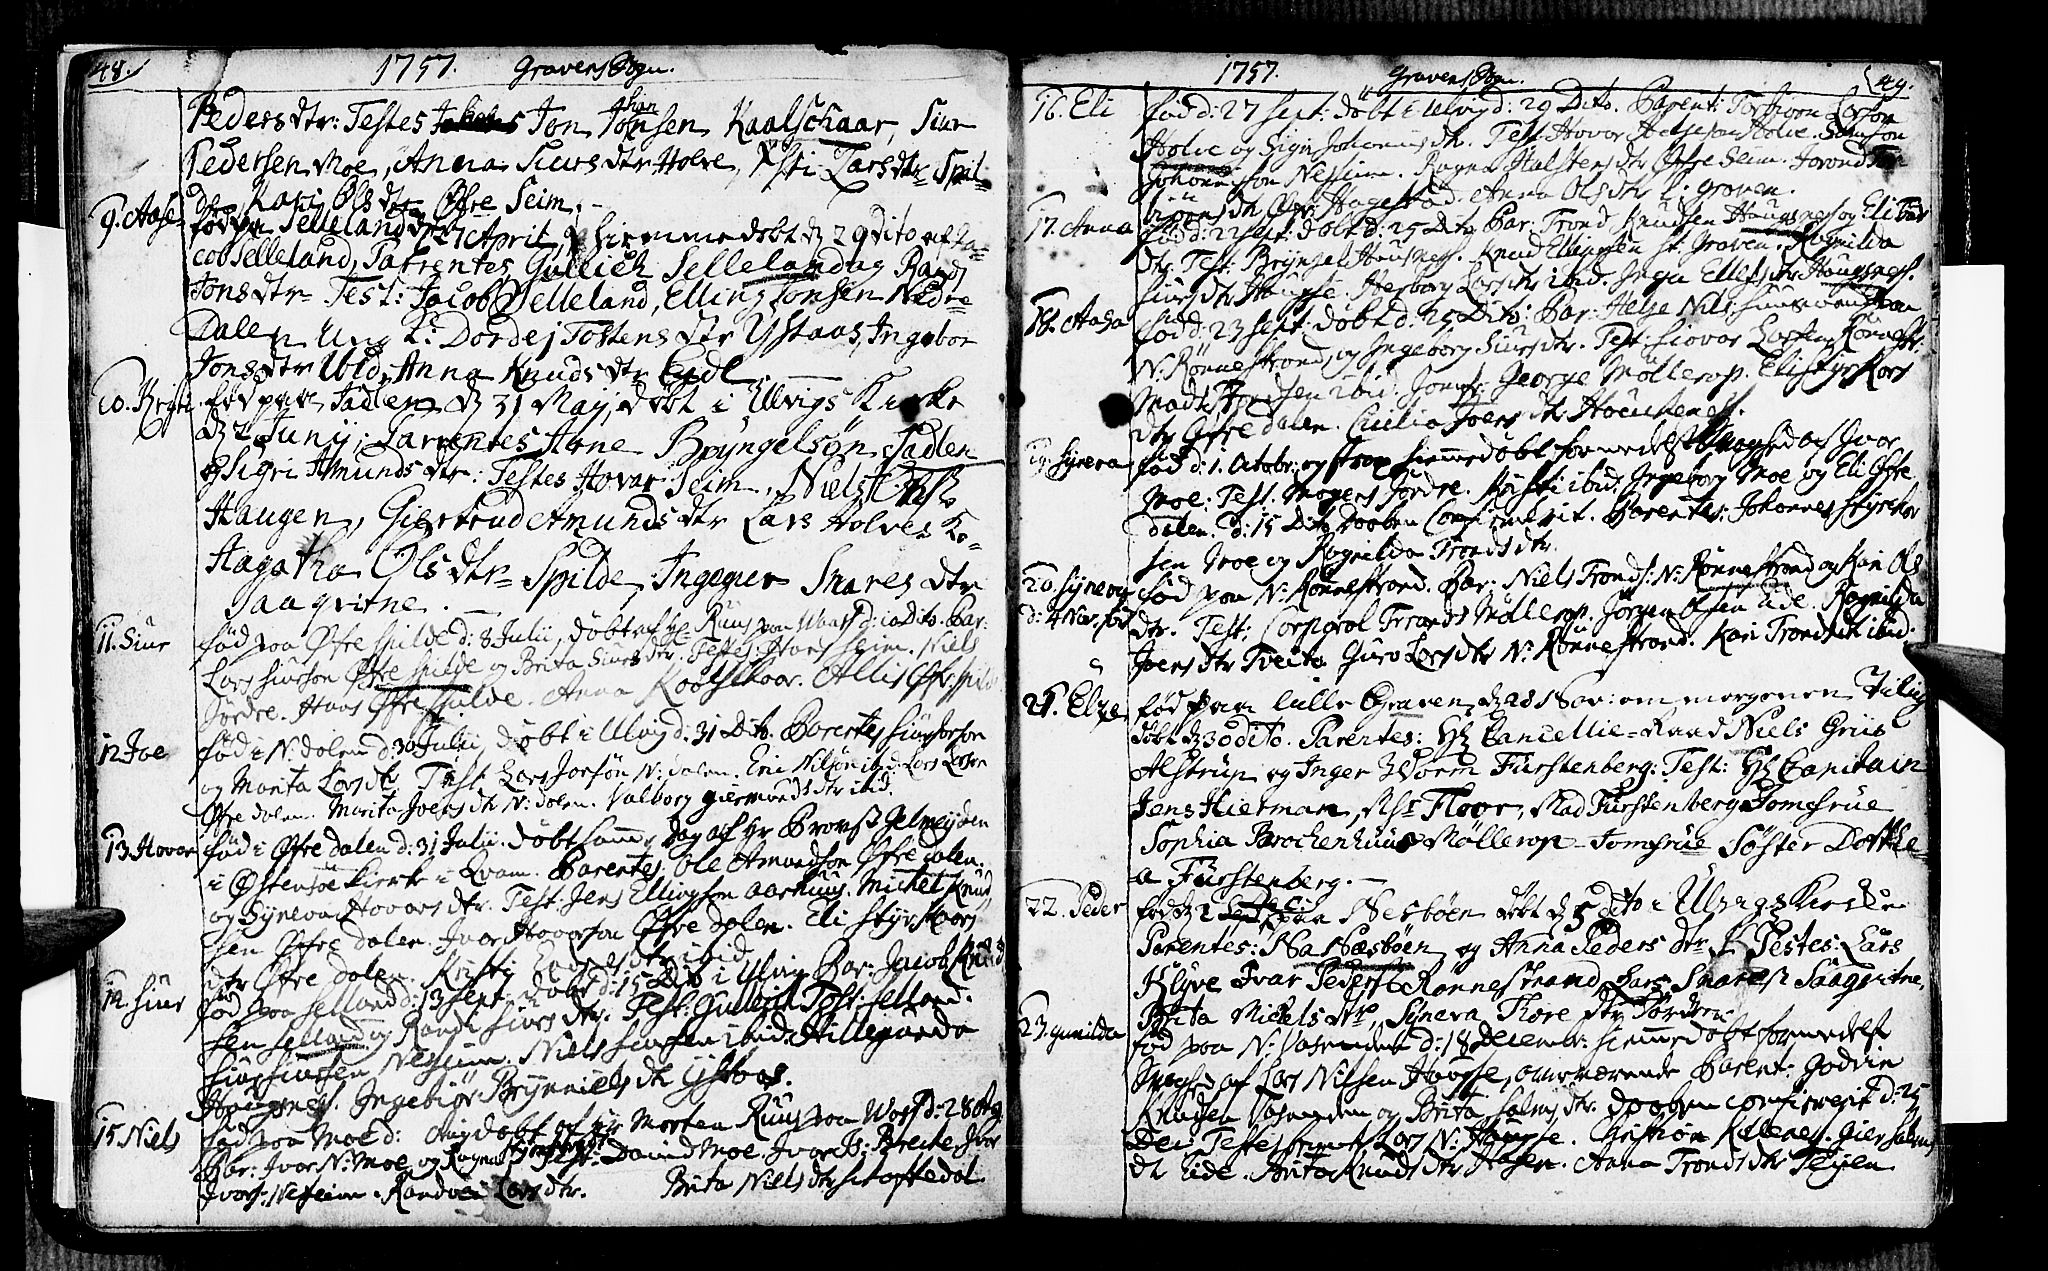 48.
1757. Gravens Sogn.
Peders dtr: Testes Jon Jonsen Kaalschaar, Siur
Pedersen Moe, Anna Siurs dtr Holve, Kisti Lars dtr Spil-
de, Kari Ols dtr Øfre Seim.
9. Aase født paa Selleland d 27 April, hiemmedøbt d 29 dito af Ja-
cob Selleland, Parentes Gullich Selleland og Randi
Jons dtr Test: Jacob Selleland, Elling Jonsen Nedre
Dalen Ung k: Dordej Tostens dtr Ystaas, Ingebor
Jons dtr Ibid, Anna Knuds dtr Eyde
10. født paa Sadlen d 31 May, døbt i Ulvigs Kirke
d 2 Junij; Parentes Arne Bryngelsøn Sadlen
og Sigri Amunds dtr: Testes Hovar Seim, Niels
Haugen, Giertrud Amunds dtr Lars Holves Ko-
Hagatha Ols dtr Spilde, Ingegier Snares dtr
Saaqvitne.
11. Siur fød paa Øfre Spilde d: 8 Julii, døbt af Hr Ruus paa Woss d: 10 Dito. Par:
Lars Siurson Øfre Spilde og Brita Siurs dtr. Testes: Hans Seim. Niels
Jördre. Hans Øfre Spilde. Anna Kaalschaar. Allis Øfr: Spilde
12 Joe fød i N: dalen d: 30 Julii, døbt i Ulvig d: 31 Dito. Parentes Siur Joeson
og Marita Lars dtr. Test: Lars Joesøn N: dalen. Eric Nilsøn ibid: Lars Larsøn
Øfre dalen. Marita Joens dtr N: dalen. Valborg Giermunds dtr ibid.
13. Hovar fød i Øfre dalen d: 31 Julii. døbt samme dag af Hr Provst Gelmeyden
i Østensøe kierke i Qvam. Parentes Ole Amundsøn Øfre dalen.
og Syneva Hovars dtr. Test: Jens Ellingsen Aarhuus. Michel Knud
sen Øfre dalen. Ivar Hovarson Øfre dalen. Eli Styrkaars
dtr Øfre dalen. Kristj dtr ibid
14. Siur fød paa Selland d: 13 Sept. døbt d: 15 Dito i Ulvig. Par: Jacob Knud
sen Selland og Randi Siurs dtr. Test: Gullich Selland.
Siur Siursen Nesheim. Niels Siursen ibid. Hillegunda
Hougsnes. Ingebiør Brynniels dtr Ystaas.
15 Niels fød paa Moe d: Aug døbt af Hr Morten Ruus paa Woss d: 28 Aug
Par: Ivar N: Moe og Test: David Moe. Ivar Is: Brecke. Ivar
Ivars: Neseim. Randvei Lars dtr. Brita Niels dtr Skaftedal
1757. Gravens Sogn. 49.
16. Eli fød d: 27 Sept: døbt i Ulvig d: 29 Dito. Parent: Torbiørn Larsøn
Holve og Sigri Johannis dtr. Test: Hovar Helgesøn Holve. Samson
Johannison Nesheim. Ragna Halstens dtr Øfre Seim. Jorond
biøns dtr Øfr: Hagestad. Anna Ols dtr l: Graven.
17. Anna fød d: 22 Sept: døbt d: 25 Dito Par: Trond Knudsen Hougsnes og Eli
dtr. Test: Brynjel Hougsnes. Knud Ellingsen st: Graven. Ragnilda
Siurs dtr Haugse. Herborg Lars dtr ibid. Inga Ellefs dtr Hougsnes.
18. Aasa fød d: 23 Sept: døbt d: 25 Dito: Par: Helje Niels
N: Rønnestrand, og Ingeborg Siurs dtr. Test: Siovar Larsen Rønnestr:
Mads ibid. Jomfr: George Møllerop. Eli Styrkors
dtr Øfre dalen. Cicilia Joens dtr
19. Syneva fød d: 1. Octobr: og strax hiemmedøbt formedelst Svaghed af Ivar
Moe: Test: Mogens Jördre. Kristi ibid. Ingeborg Moe og Eli Øfre
dalen. d: 15 Dito Daaben Confirmerit. Parentes: Johannes Styrkor
sen Moe og Ragnilda Tronds dtr.
20. Syneva fød paa N: Rønnestrand. Par: Niels Tronds: N: Rønnestrand og Kari Ols
d: 4 Nov: fød dtr. Test: Corporal Møllerop. Jørgen Olsen Eide. Ragnilda
Joens dtr Tveito. Guro Lars dtr N: Rønnestrond. Kari Tronds dtr ibid.
21. Elze fød paa lille Graven d 28 Nov: om morgenen Tilig
døbt d 30 dito. Parentes: Hr Cancellie-Raad Niels Griis
Alstrup og Inger Worm Fürstenberg: Test: Hr Capitain
Jens Hierman, Msr Floor, Mad Fürstenberg Jomfrue
Sophia Brochenhuus Møllerop Jomfrue Søster Dotthe-
a Fürstenberg.
22. Peder fød d 2 paa Nesbøen døbt d 5 dito i Ulvigs Kircke
Parentes: Næsbøen og Anna Peders dtr Testes: Lars
Klyve Ivar Peders Rønnestrand, Lars Snares Saaqvitne,
Brita Niels dtr, Synava Thore dtr Jördre
23. Gunilda fød paa N: Vasenden d: 18 Decembr: hiemmedøbt formedelst
af Lars Nilsen Haugse, omværende Parent: Godvin
Knudsen Vasenden og Brita dtr. Daaben confirmerit d: 25
Dec: Testes Lars N: Haugse. Christian
dtr Eide. Brita Knuds dtr Hagen. Anna Tronds dtr Teigen